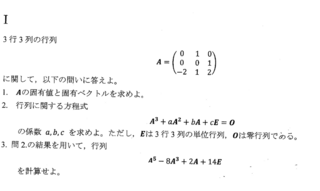 I
3 行 3 列の行列
A = ( 0 1 0
0 0 1
-2 1 2 )
に関して、以下の問いに答えよ。
1. Aの固有値と固有ベクトルを求めよ。
2. 行列に関する方程式
A³ + aA² + bA + cE = O
の係数 a, b, c を求めよ。ただし、Eは 3 行 3 列の単位行列、Oは零行列である。
3. 問 2.の結果を用いて、行列
A⁵ − 8A³ + 2A + 14E
を計算せよ。